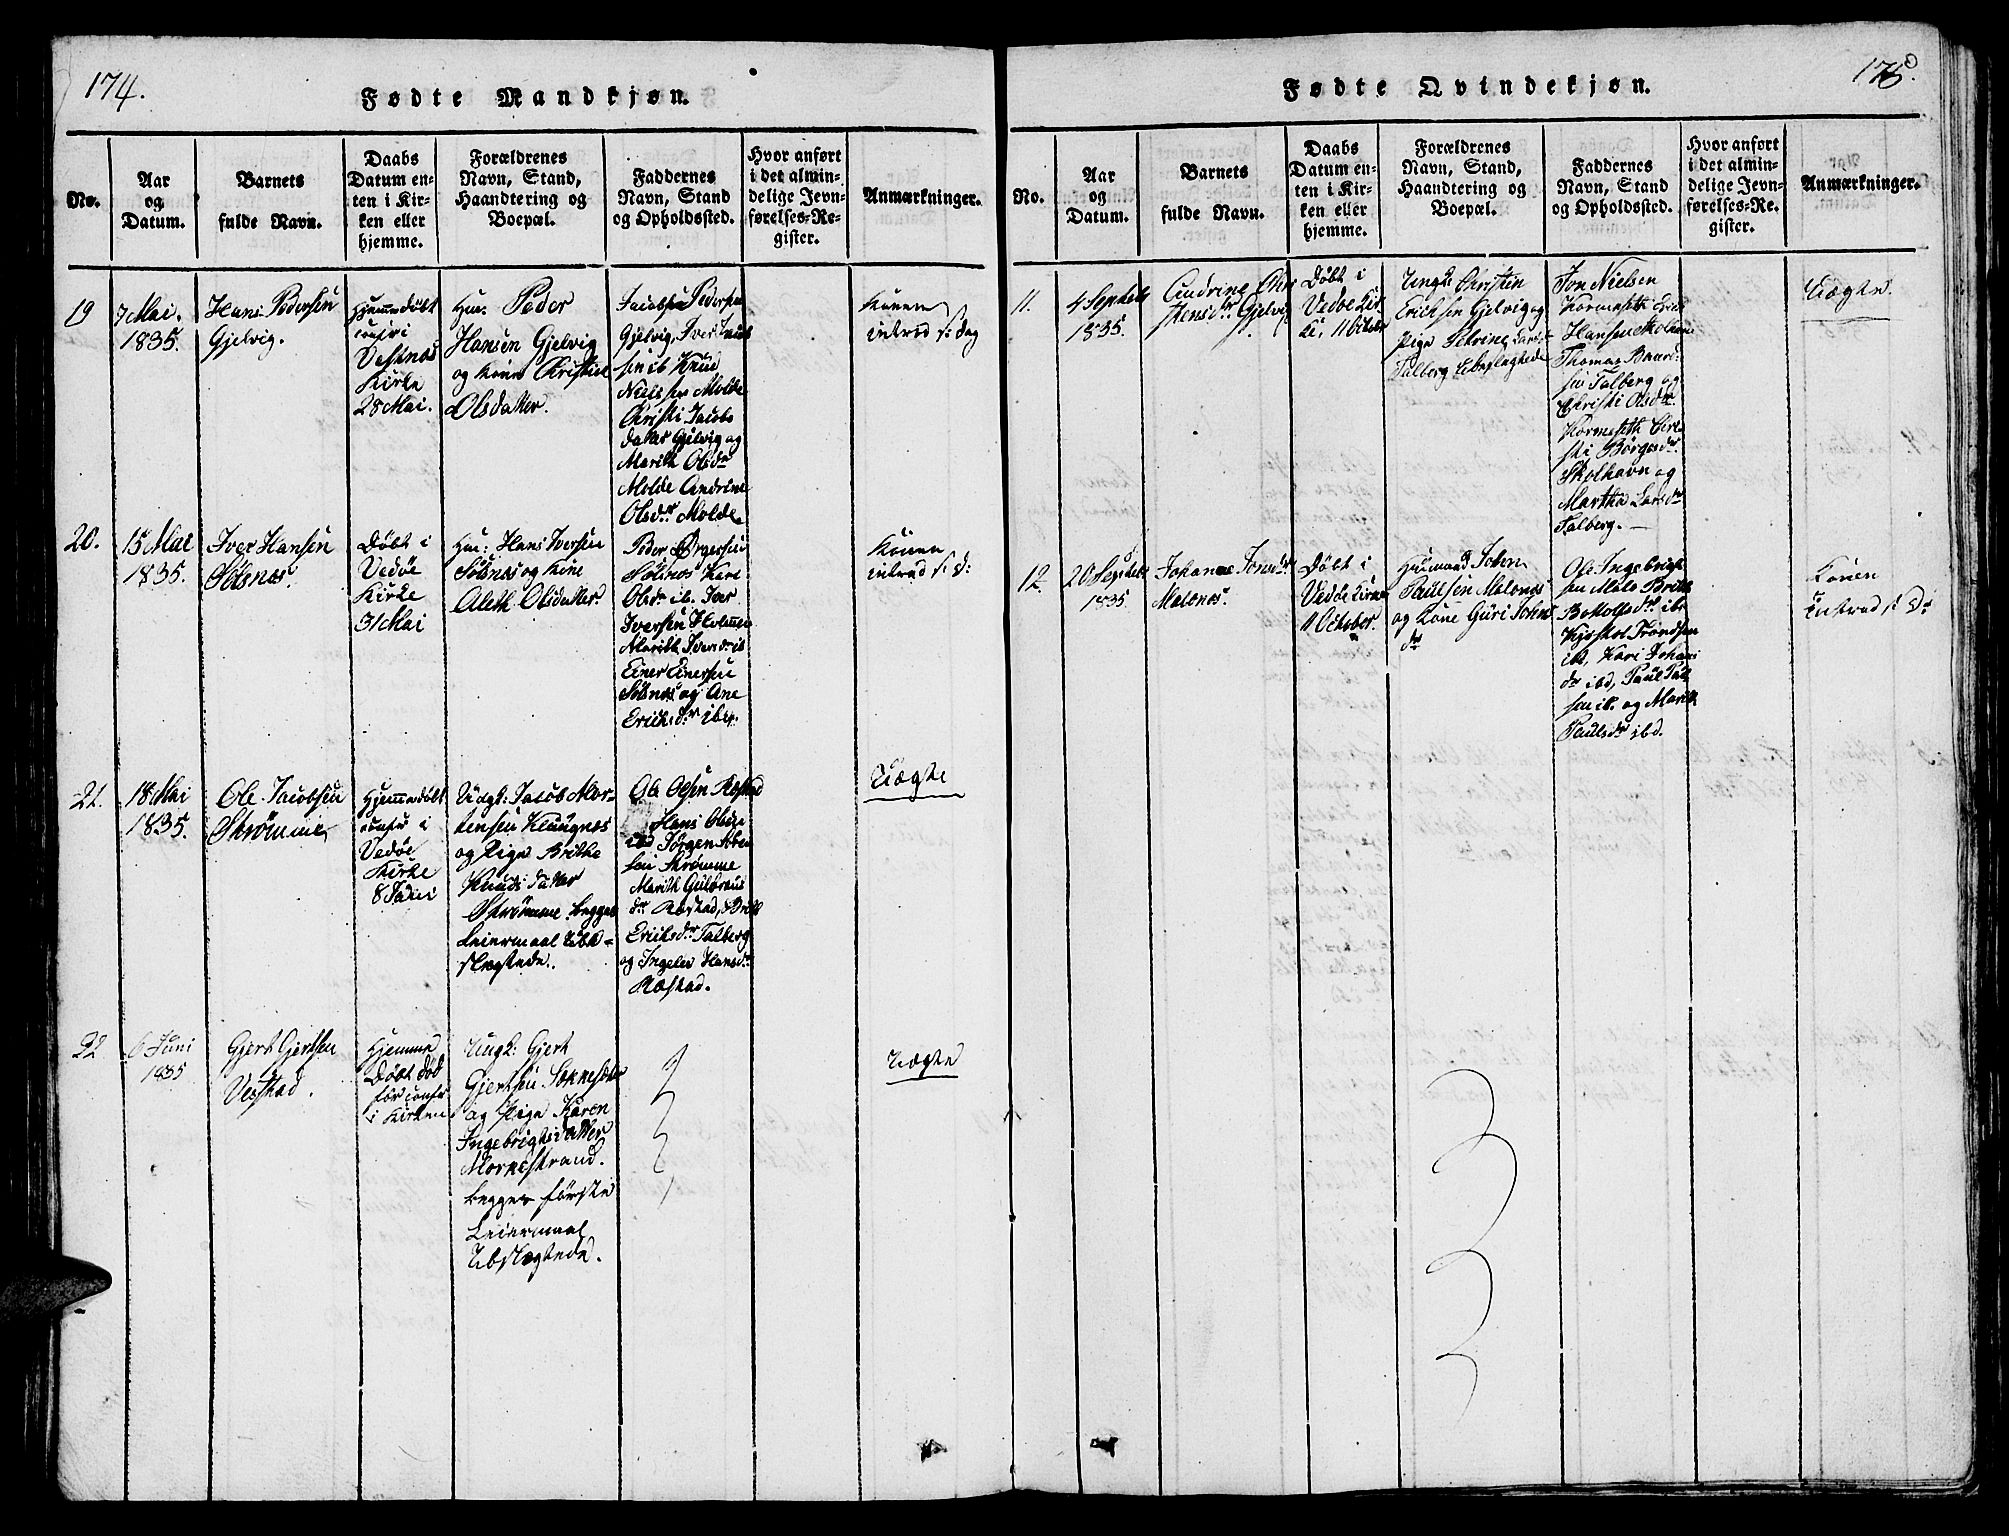 174.
Fødte Mandkjøn.
No.
Aar
og
Datum.
Barnets
fulde Navn.
Daabs
Datum en-
ten i Kir-
ken eller
hjemme.
Forældrenes
Navn, Stand,
Haandtering og
Boepæl.
Faddernes
Navn, Stand
og Opholdssted.
Hvor anført
i det almin-
delige Jevn-
førelses-Re-
gister.
Anmærkninger.
19
7 Mai.
1835.
Hans Pedersen
Gjelvig.
Hjemmedøbt
confir i
Vestnes
Kirke
28 Mai.
Hm. Peder
Hansen Gjelvig
og Kone Christine
Olsdatter.
Jacob Pedersen
Gjelvig, Iver Knud
sen ib Knud
Nielssen Molde
Christi Jacobs
datter Gjelvig og
Marith Olsdr
Molde Andrine
Olsdr Molde
Konen
introd s: Dag
20.
15 Mai
1835.
Iver Hansen
Sølsnes.
Døbt i
Vedøe
Kirke
31 Mai
Hm: Hans Iversen
Sølsnes og Kone
Aleth Olsdatter.
Peder Ørgersen
Sølsnes Kari
Olsdr ib. Iver
Iversen Holmen
Marith Iversdr ib
Einer Einersen
Sølsnes og Ane
Erichsdr ibid.
Konen
introd s: d:
21.
18 Mai
1835.
Ole Jacobsen
Strømme
Hjemmedøbt
confir i
Vedøe
Kirke
8 Juni
Ungk: Jacob Mor-
tensen Klaugnes
og Pige Brithe
Knuds datter
Strømme begges
Leiermaal Ube-
slægtede.
Ole Olsen Røstad
Hans Olsen
ibd Jørgen
sen Strømme
Marith Guldvaus
dr Røstad, Brith
Eriksdr Talberg
og Ingeler Hansdr
Røstad.
Uægte
22
6 Juni
1835
Gjert Gjertsen
Vestad.
Hjemme
Døbt død
før confir
i Kirken
Ungk: Gjert
Gjertsen Sønneset
og Pige Karen
Ingebrigtsdatter
Mornestrand.
begges første
Leiermaal
Ubslægtede.
Uægte
175.
Fødte Qvindekjøn.
No.
Aar
og
Datum.
Barnets
fulde Navn.
Daabs
Datum en-
ten i Kir-
ken eller
hjemme.
Forældrenes
Navn, Stand,
Haandtering og
Boepæl.
Faddernes
Navn, Stand
og Opholdssted.
Hvor anført
i det almin-
delige Jevn-
førelses-Re-
gister.
Anmærkninger.
11.
4 Septebr
1835.
Andrine Chri
stensdr Gjelvig
Døbt i
Vedøe Kir
ke, 11 October
Ungk Christen
Erichsen Gjelvig og
Pige Sekrine Larsdr
Talberg Ubeslægtede
Jon Nielsen
Kormeseth Erich
Hansen Skolhavn
Thomas Baard-
sen Talberg og
Christi Olsdr
Kormeseth Chri-
sti Børgesdr.
Skolhavn og
Martha Larsdr
Talberg. —
Uægte.
12.
20 Septebr
1835.
Johanne Jonsdr
Malones.
Døbt i
Vedøe Kirke
11 October
Huusmand John
Paulsen Malones
og Kone Guri Johns
dr
Ole Ingebrigt
sen Malo Brith
Botolfsdr ibd
Trondsen
ibd, Kari Johans
dr ibd, Paul Paul
sen ib. og Marith
Paulsdr ibd.
Konen
introd s: D: